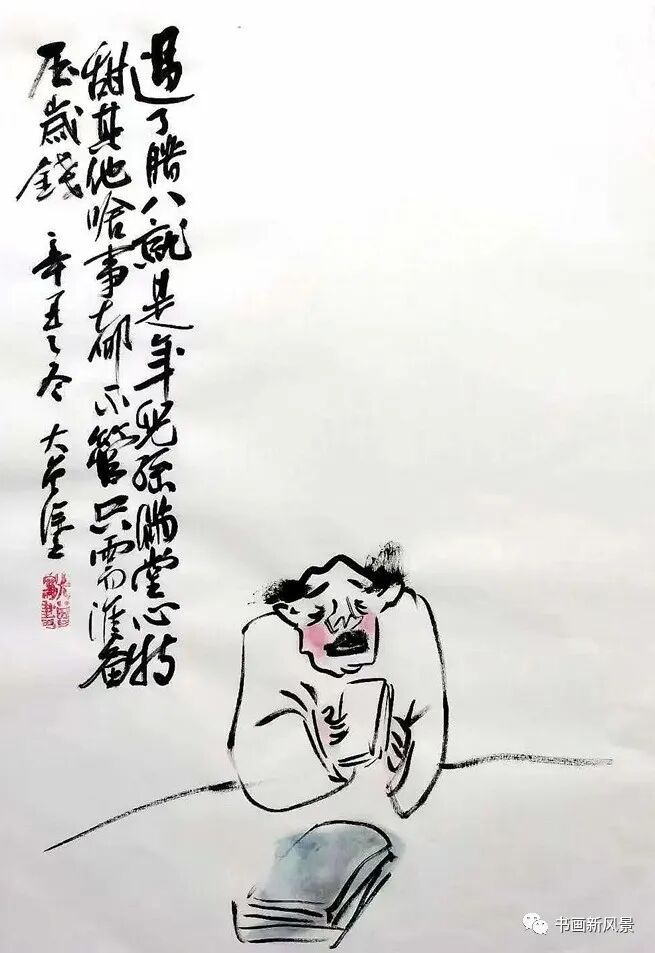 过了腊八就是年儿孙满堂心特
甜其他啥事都不管只需准备
压岁钱 辛丑之冬 大
书画新风景